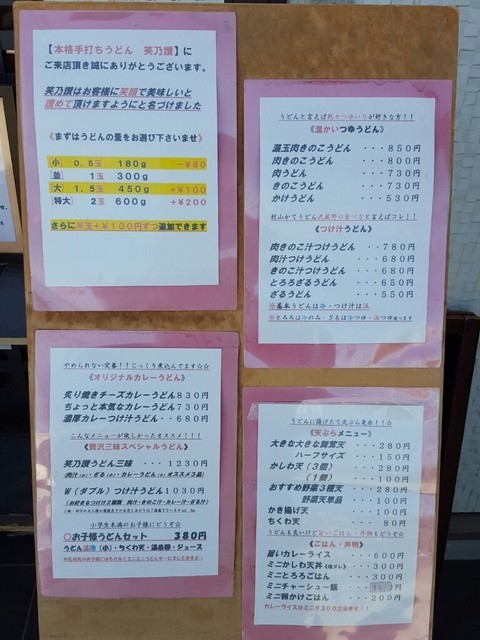 【本格手打ちうどん 笑乃讃】に
ご来店頂き誠にありがとうございます。
笑乃讃はお客様に笑顔で美味しいと
讃めて頂けますようにと名づけました
《まずはうどんの量をお選び下さいませ》
[小] 0.5玉 180g －¥80
[並] 1玉 300g
[大] 1.5玉 450g ＋¥100
[特大] 2玉 600g ＋¥200
さらに半玉＋¥100円ずつ追加できます
うどんと言えば熱々つゆいりが好きな方！！
《温かいつゆうどん》
温玉肉きのこうどん ・・850円
肉きのこうどん ・・・800円
肉うどん ・・・730円
きのこうどん ・・・730円
かけうどん ・・・530円
村山かてうどん武蔵野の食べ方と言えばコレ！！
《つけ汁うどん》
肉きのこ汁つけうどん ・・・780円
肉汁つけうどん ・・・680円
きのこ汁つけうどん ・・・680円
とろろざるうどん ・・・650円
ざるうどん ・・・550円
※基本うどんは冷・つけ汁は温
※とろろは冷のみ・ざるは冷つゆ・温つゆ選べます
やめられない定番！！じっくり煮込んでます☆☆
《オリジナルカレーうどん》
炙り焼きチーズカレーうどん830円
ちょっと本気なカレーうどん・730円
濃厚カレーつけ汁うどん・・680円
こんなメニューが欲しかったオススメ！！！
《贅沢三昧スペシャルうどん》
笑乃讃うどん三昧 ・・・1230円
W(ダブル)つけ汁うどん1030円
小学生未満のお子様にどうぞ☆
〇お子様うどんセット 380円
うどん温冷(小)・ちくわ天・温泉卵・ジュース
うどんに揚げたて天ぷら是非！！
《天ぷらメニュー》
大きな大きな舞茸天 ・・280円
ハーフサイズ ・・・150円
かしわ天（3個） ・・・280円
（1個） ・・・100円
おすすめ野菜3種天 ・・・280円
野菜天単品 ・・・100円
かき揚げ天 ・・・100円
ちくわ天 ・・・80円
うどんも良いけど旨いごはん・丼物もどうぞ☆
《ごはん・丼物》
賄いカレーライス ・・・600円
ミニかしわ天丼 ・・・300円
ミニとろろごはん ・・・300円
ミニチャーシュー飯
ミニ卵かけごはん ・・・200円
カレーライスはミニ¥300出来ます！！